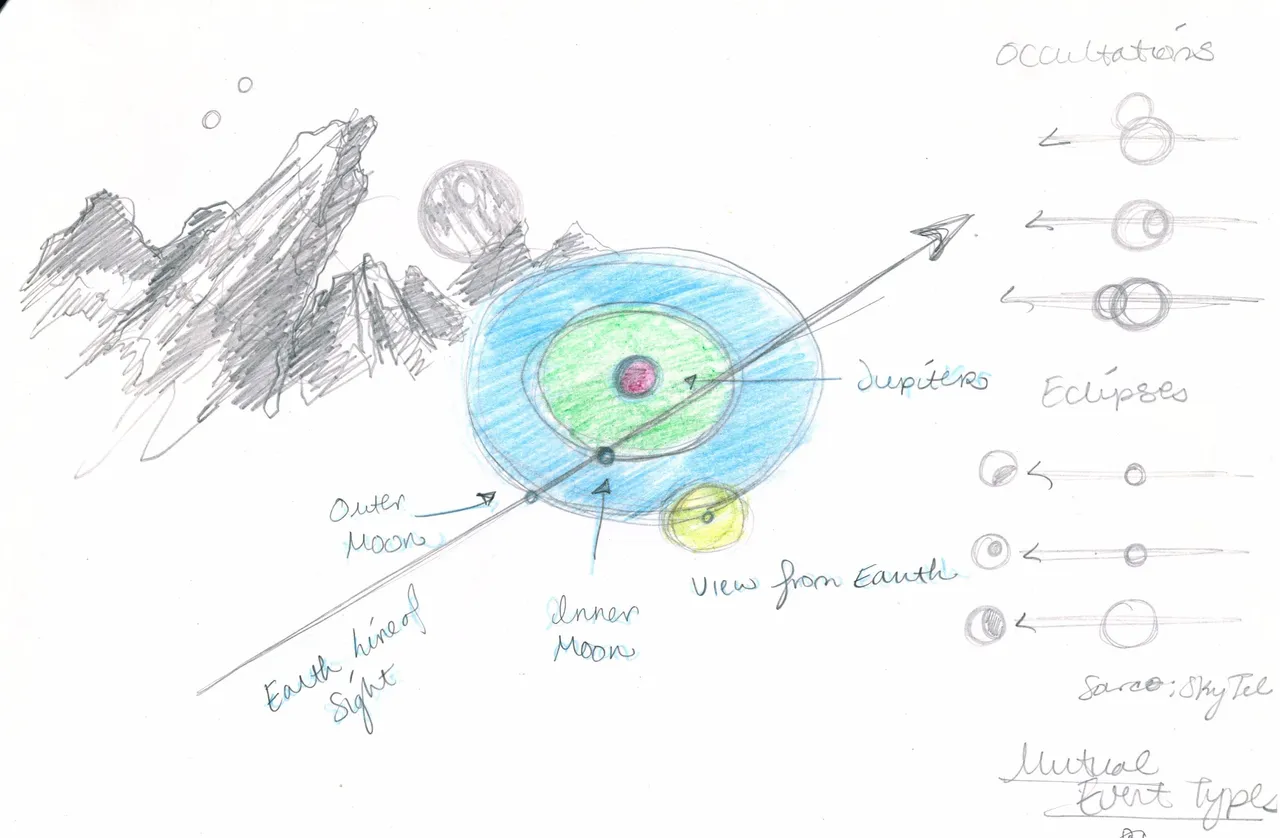 Occultations
Jupiters
Eclipses
Outer
Moon
View from Earth
Inner
Moon
Earth Line of
Sight
Sarce: SkyTel
Mutual
Event Types